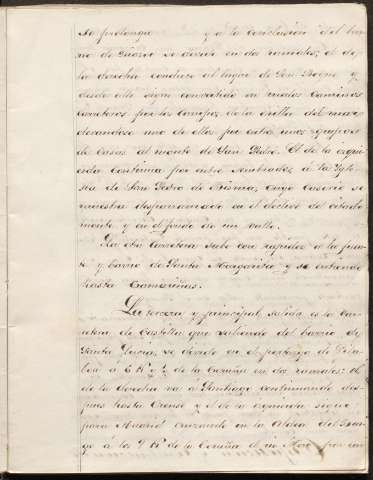 se prolonga y a la conclusion del bar-
rio de Riazor se divide en dos ramales; el de
la derecha conduce al lugar de San Roque y
desde alli sigue convertido en varios caminos
carreteros por los campos de la orilla del mar
elevandose uno de ellos por entre unos grupos
de casas al monte de San Pedro. El de la izqui-
erda continua por entre sembrados á la Igle-
sia de San Pedro de Visma, cuyo caserio se
muestra desparramado en el declive del citado
monte y en el fondo de un valle.
La otra carretera sube con rapidez á la fuen-
te y barrio de Santa Margarita y se extiende
hasta Camariñas.
La tercera y principal salida es la Car-
retera de Castilla que saliendo del barrio de
Santa Lucia, se divide en el portazgo de
á 6 K. y ½ de la Coruña en dos ramales: el
de la derecha va á Santiago continuando des-
pues hasta Orense y el de la izquierda sigue
para Madrid cruzando en la Aldea del
á los 9 K. de la Coruña el rio por un